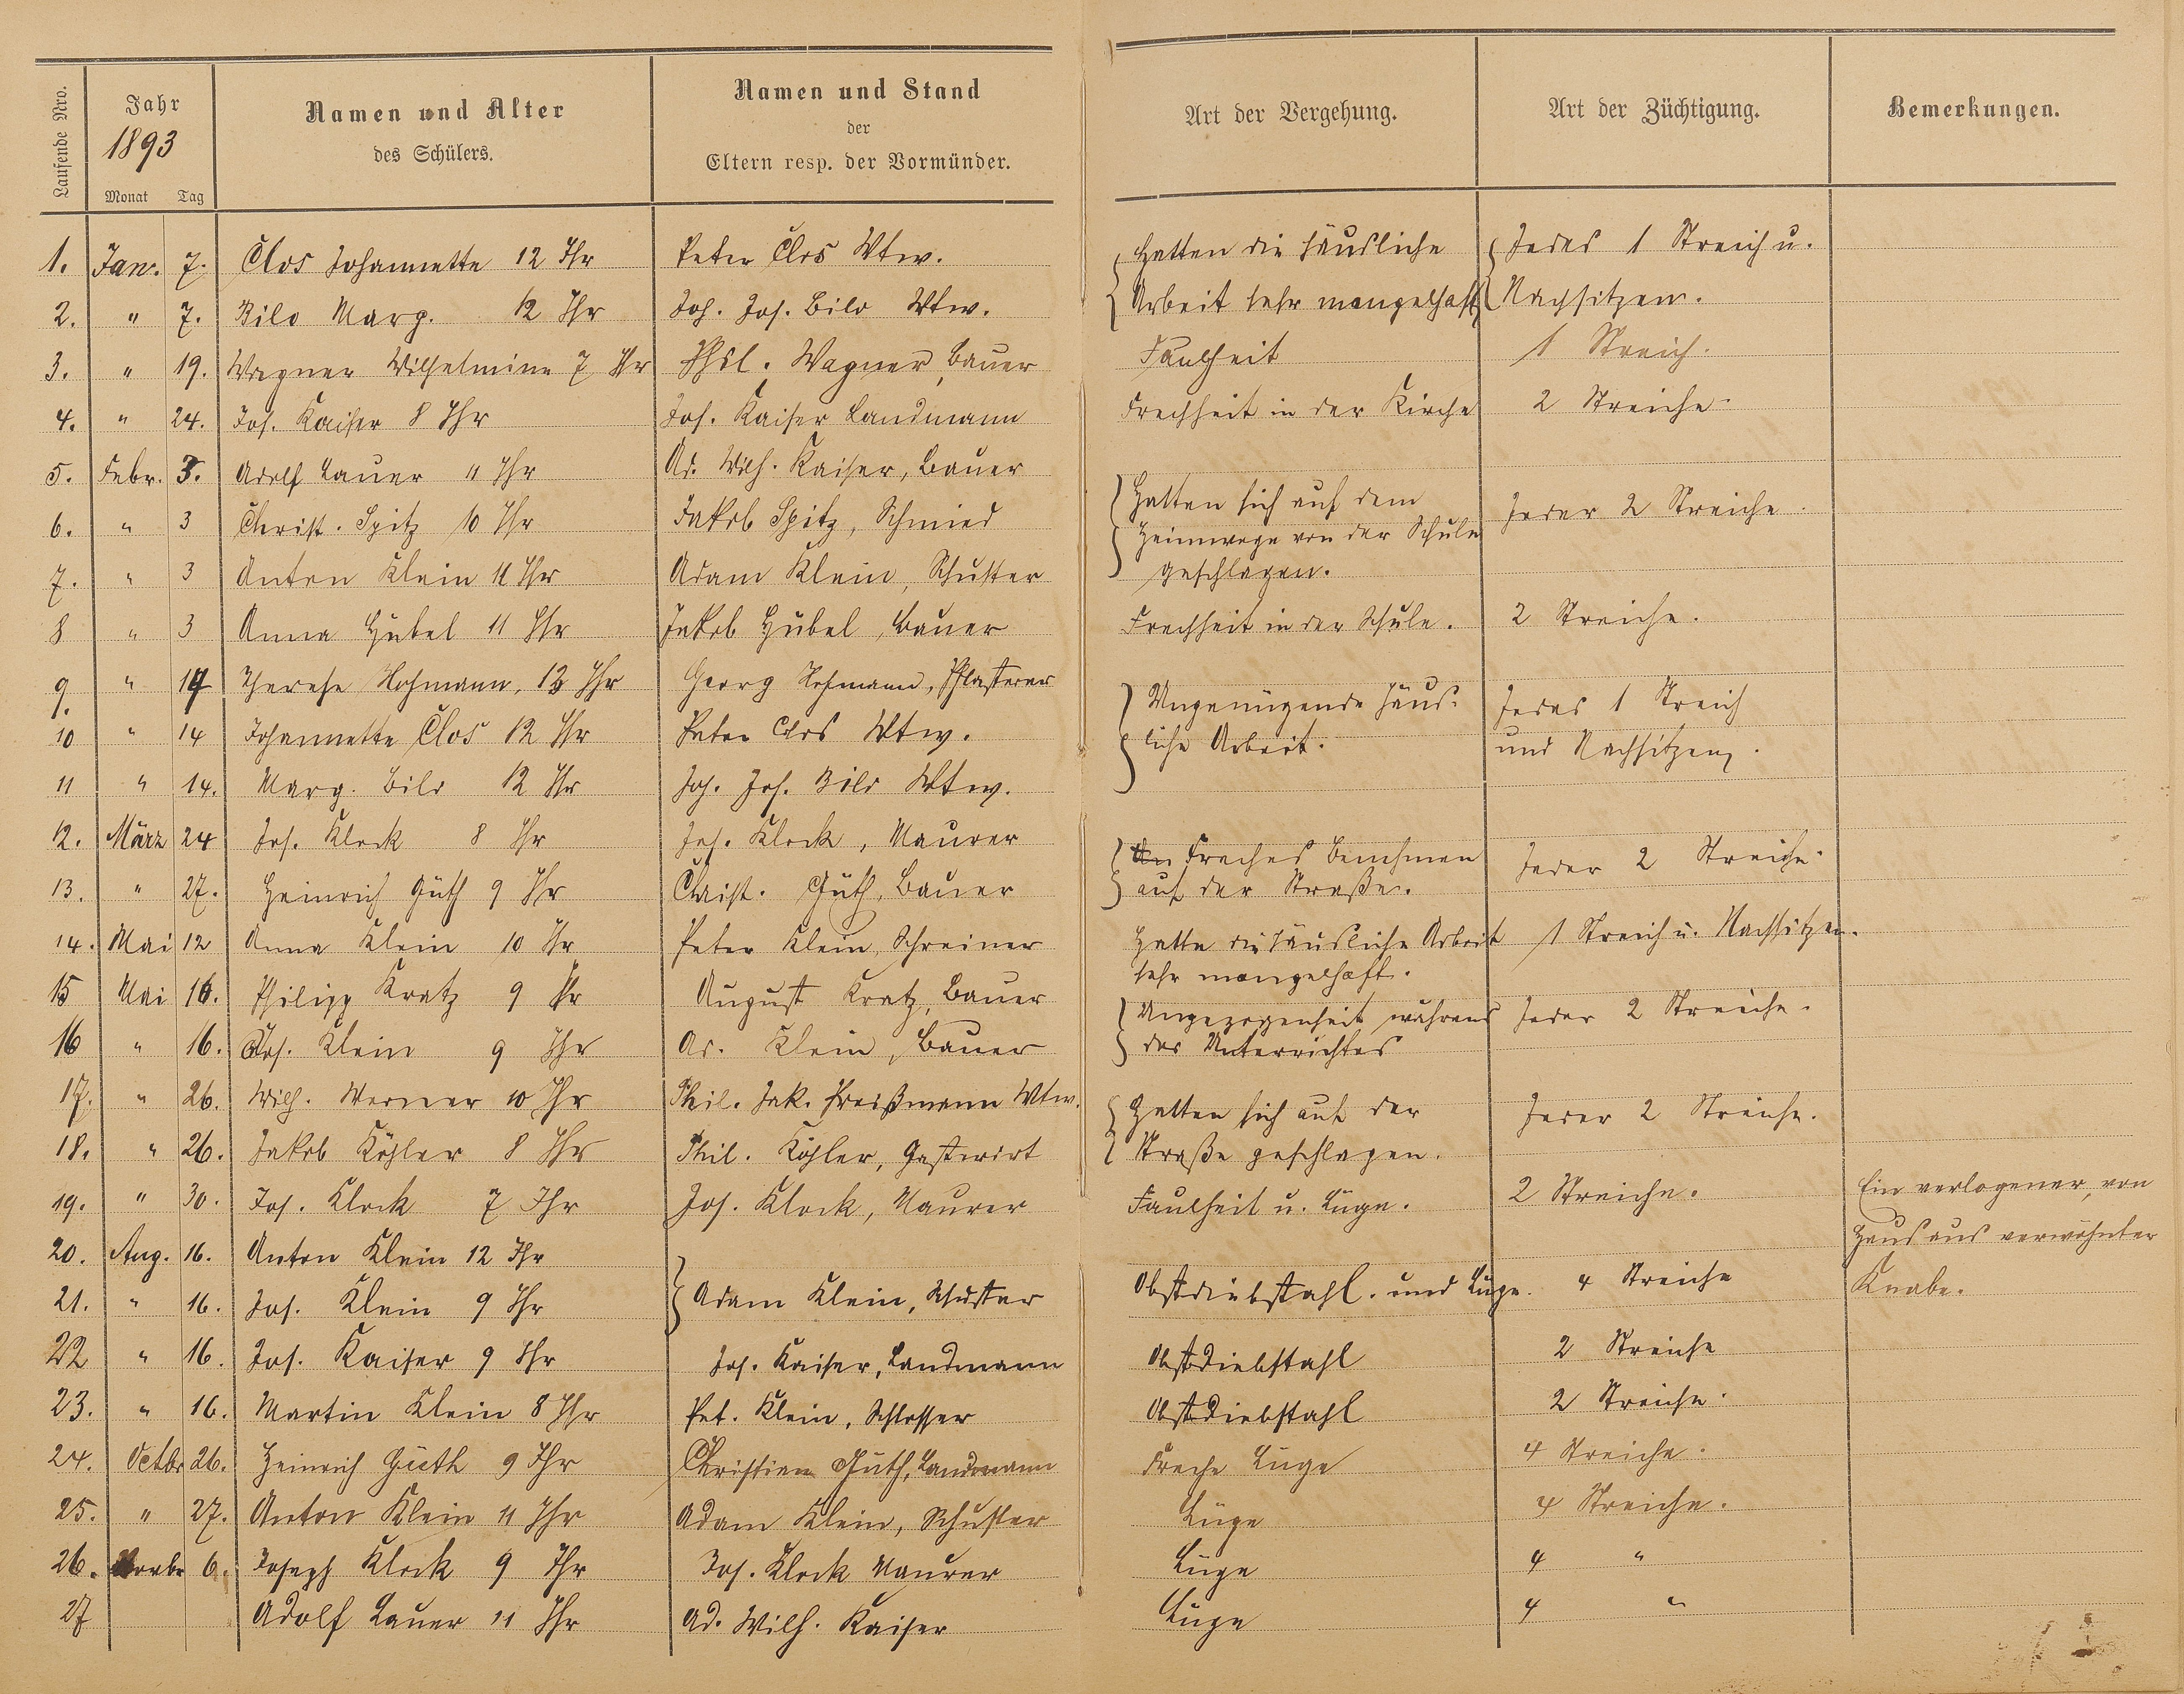 Laufende Nro.
Jahr
1893
Monat Tag
Namen und Alter
des Schülers.
Namen und Stand
der
Eltern resp. der Vormünder.
Art der Vergehung.
Art der Züchtigung.
Bemerkungen.
1. Jan. 7. Clos Johannette 12 Jhr Peter Clos Wtw. Hatten die häusliche Jedes 1 Streich u.
2. " 7. Bilo Marg. 12 Jhr Joh. Jos. Bilo Wtw. Arbeit sehr mangelhaft Nachsitzen.
3. " 19. Wagner Wilhelmine 7 Jhr Phil. Wagner, Bauer Faulheit 1 Streich.
4. " 24. Jos. Kaiser 8 Jhr Jos. Kaiser Landmann Frechheit in der Kirche 2 Streiche.
5. Febr. 3. Adolf Lauer 11 Jhr Ad. Wilh. Kaiser, Bauer
Hatten sich auf dem
6. " 3 Christ. Spitz 10 Jhr Jakob Spitz, Schmied Heimwege von der Schule Jeder 2 Streiche.
7. " 3 Anton Klein 11 Jhr Adam Klein, Schuster geschlagen.
8 " 3 Anna Hübel 11 Jhr Jakob Hübel, Bauer Frechheit in der Schule. 2 Streiche.
9. " 14 Therese Hofmann, 13 Jhr Georg Hofmann, Pflasterer Ungenügende häus- Jedes 1 Streich
10 " 14 Johannette Clos 12 Jhr Peter Clos Wtw. liche Arbeit. und Nachsitzen.
11 " 14. Marg. Bilo 12 Jhr Joh. Jos. Bilo Wtw.
12. März 24 Jos. Klock 8 Jhr Jos. Klock, Maurer Freches Benehmen Jeder 2 Streiche.
13. " 27. Heinrich Güth 9 Jhr Christ. Güth, Bauer auf der Straße.
14. Mai 12 Anna Klein 10 Jhr Peter Klein, Schreiner Hatte die häusliche Arbeit 1 Streich u. Nachsitzen.
sehr mangelhaft.
15 Mai 16. Philipp Kratz 9 Jhr August Kratz, Bauer Ungezogenheit während Jeder 2 Streiche.
16 " 16. Jos. Klein 9 Jhr Ad. Klein, Bauer des Unterrichtes
17. " 26. Wilh. Werner 10 Jhr Phil. Jak. Preißmann Wtw. Hatten sich auf der Jeder 2 Streiche.
18. " 26. Jakob Köhler 8 Jhr Phil. Köhler, Gastwirt Straße geschlagen.
19. " 30. Jos. Klock 7 Jhr Jos. Klock, Maurer Faulheit u. Lüge. 2 Streiche. Ein verlogener, von
Haus aus verwöhnter
Knabe.
20. Aug. 16. Anton Klein 12 Jhr
21. " 16. Jos. Klein 9 Jhr Adam Klein, Schuster Obstdiebstahl. und Lüge. 4 Streiche
22 " 16. Jos. Kaiser 9 Jhr Jos. Kaiser, Landmann Obstdiebstahl 2 Streiche
23. " 16. Martin Klein 8 Jhr Pet. Klein, Schlosser Obstdiebstahl 2 Streiche.
24. Octbr 26. Heinrich Güth 9 Jhr Christian Güth, Landmann Freche Lüge 4 Streiche.
25. " 27. Anton Klein 11 Jhr Adam Klein, Schuster Lüge 4 Streiche.
26. Novbr 6. Joseph Klock 9 Jhr Jos. Klock Maurer Lüge 4 "
27 Adolf Lauer 11 Jhr Ad. Wilh. Kaiser Lüge 4 "